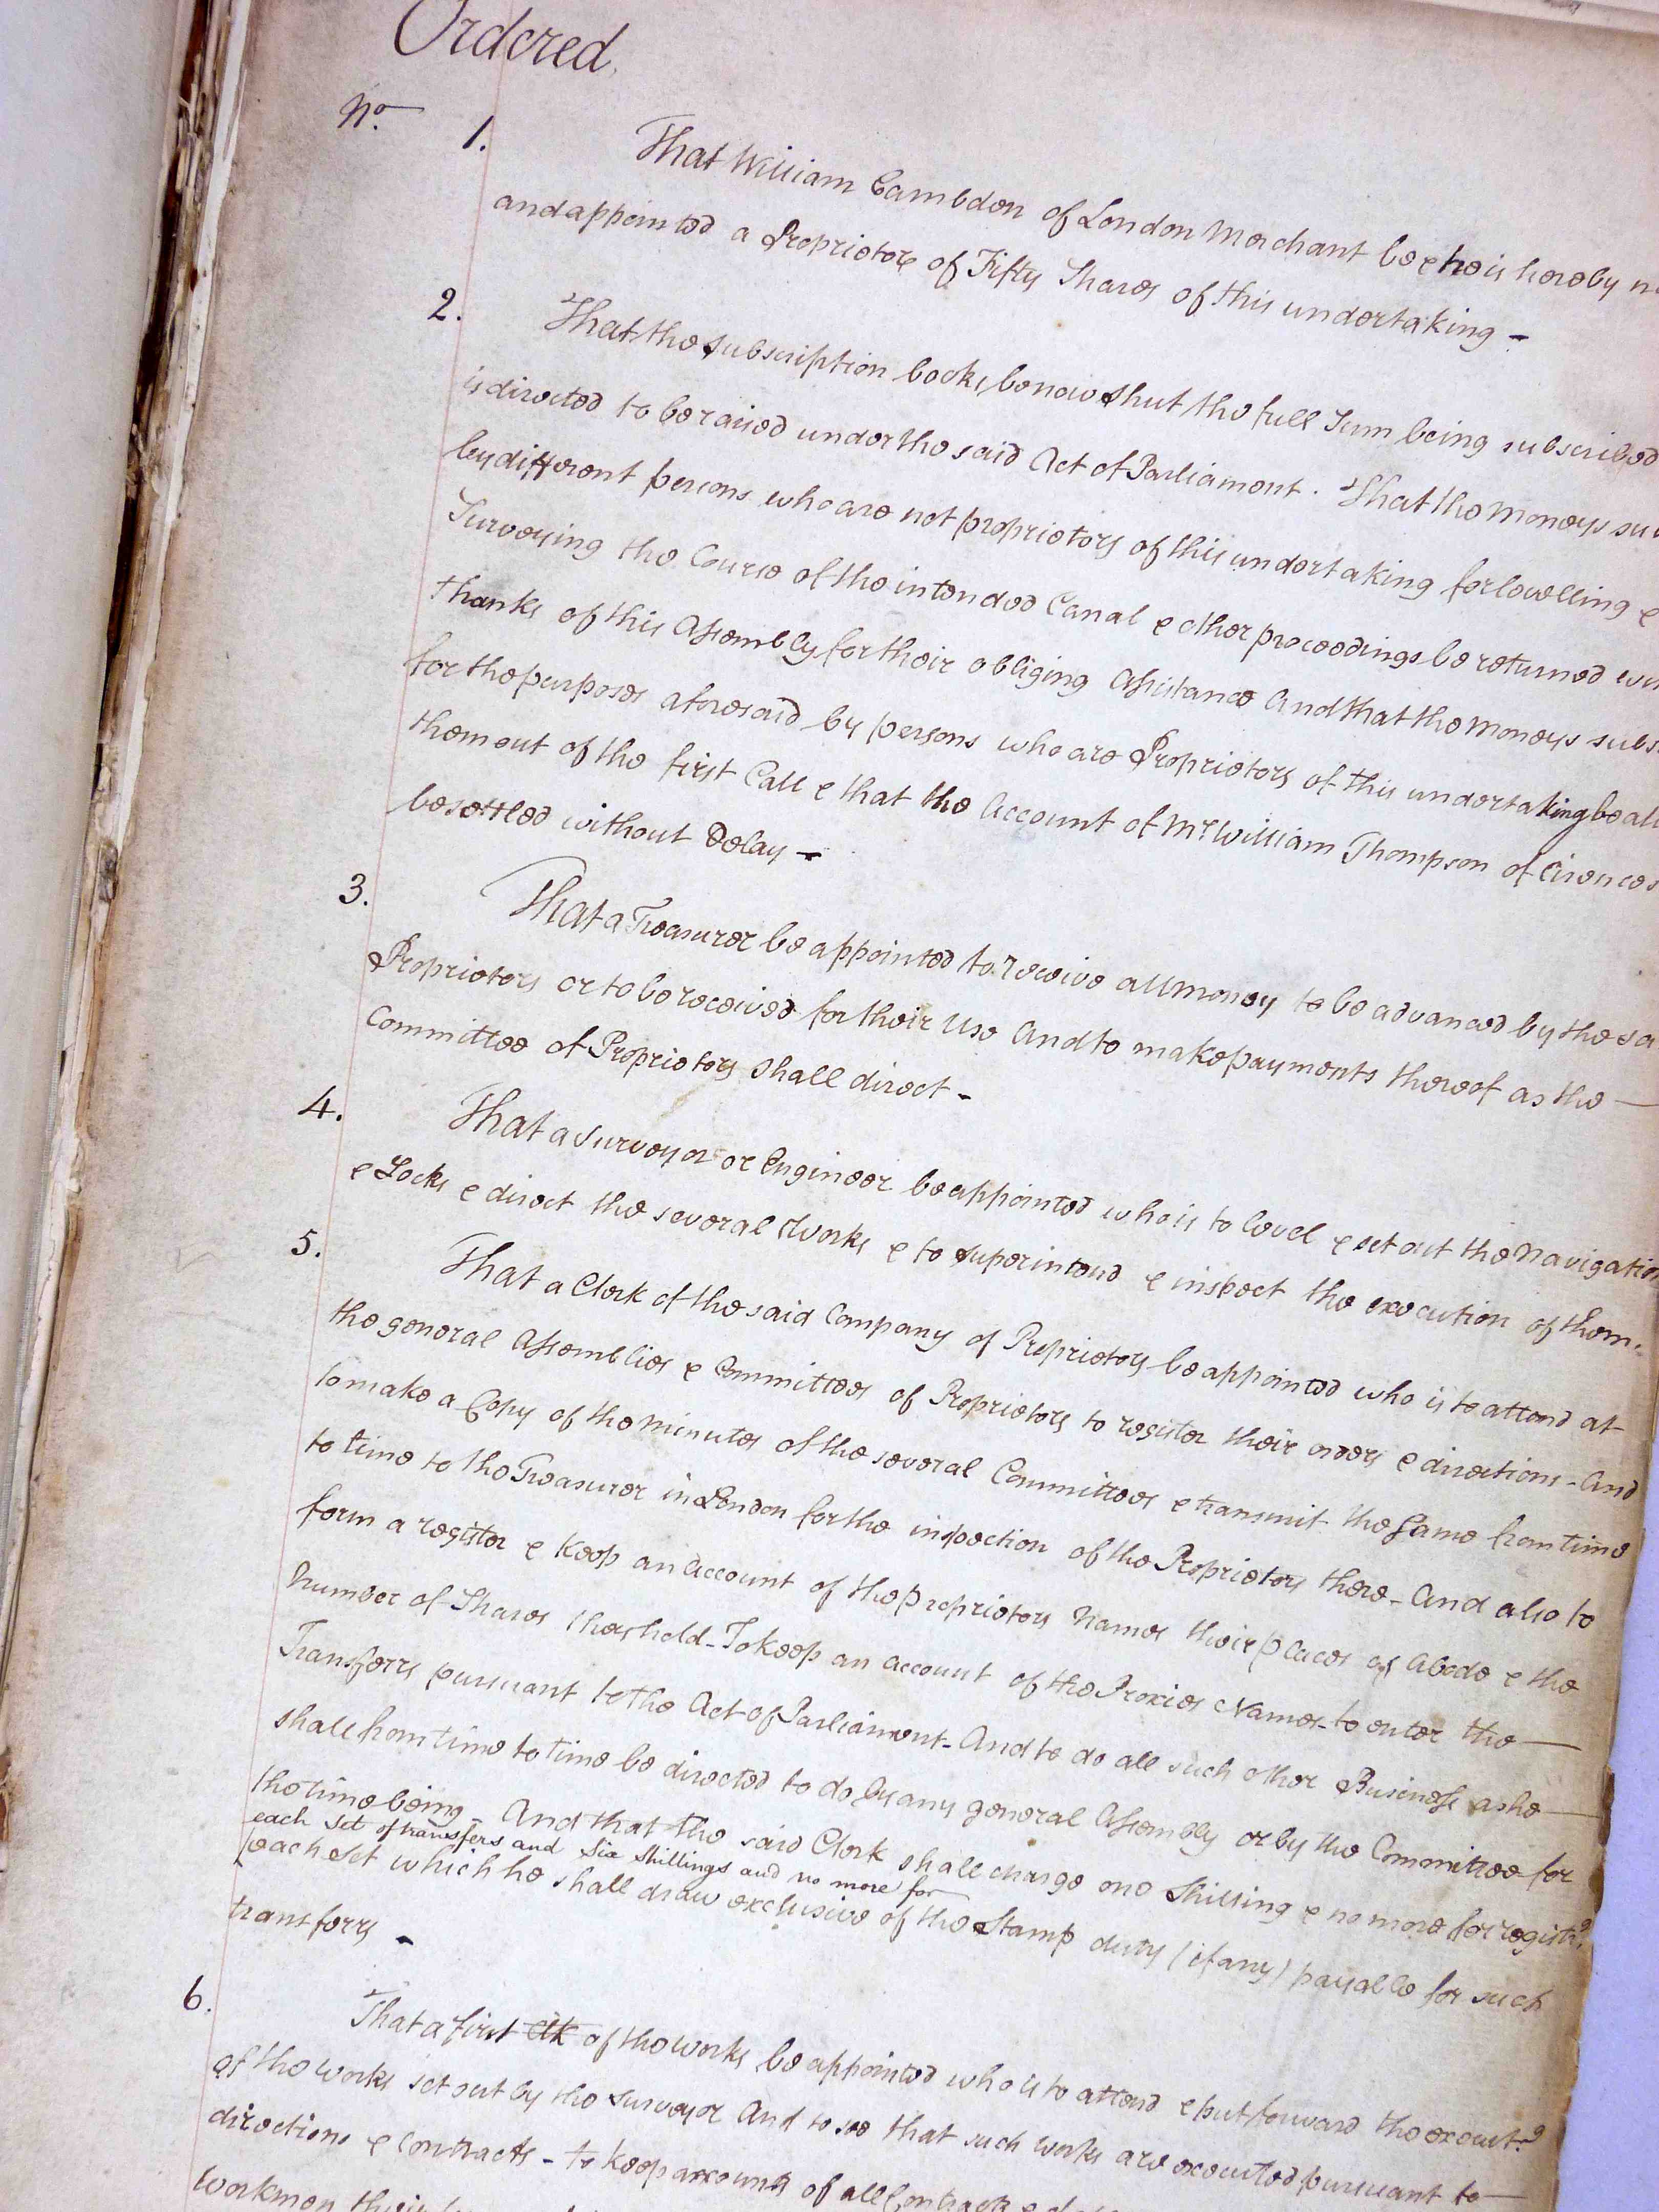 Ordered.
No. 1. That William Cambdon of London Merchant be & he is hereby
and appointed a Proprietor of Fifty Shares of this undertaking -
2. That the Subscription books be now Shut the full Sum being subscribed
is directed to be raised under the said Act of Parliament. That the Moneys
by different persons who are not proprietors of this undertaking for levelling &
Surveying the Course of the intended Canal & other proceedings be returned
thanks of this Assembly for their obliging Assistance And that the Moneys subs
for the purposes aforesaid by persons who are Proprietors of this undertaking be
them out of the first Call & that the Account of Mr. William Thompson of Cirences
be settled without Delay -
3. That a Treasurer be appointed to receive all money to be advanced by the sa
Proprietors or to be received for their Use And to make payments thereof as the —
Committee of Proprietors shall direct -
4. That a Surveyor or Engineer be appointed who is to level & set out the Navigation
& Locks & direct the several Works & to superintend & inspect the execution of them.
5. That a Clerk of the said Company of Proprietors be appointed who is to attend at
the general Assemblies & Committees of Proprietors to register their orders & directions - And
to make a Copy of the Minutes of the several Committees & transmit the Same from time
to time to the Treasurer in London for the inspection of the Proprietors there - And also to
form a register & keep an Account of the proprietors Names their places of Abode & the
Number of Shares they hold - To keep an account of the Proxies Names - to enter the —
Transferrs pursuant to the Act of Parliament - And to do all such other Business as he —
shall from time to time be directed to do by any general Assembly or by the Committee for
the time being - And that the said Clerk shall charge one Shilling & no more for registr.g
each Set of transfers and Six Shillings and no more for
each set which he shall draw exclusive of the Stamp duty (if any) payable for such
transferrs -
6. That a first Clk of the Works be appointed who is to attend & put forward the execut.n
of the works set out by the Surveyor And to see that such works are executed pursuant to —
directions & Contracts - to keep accounts of all Contracts &
workmen their